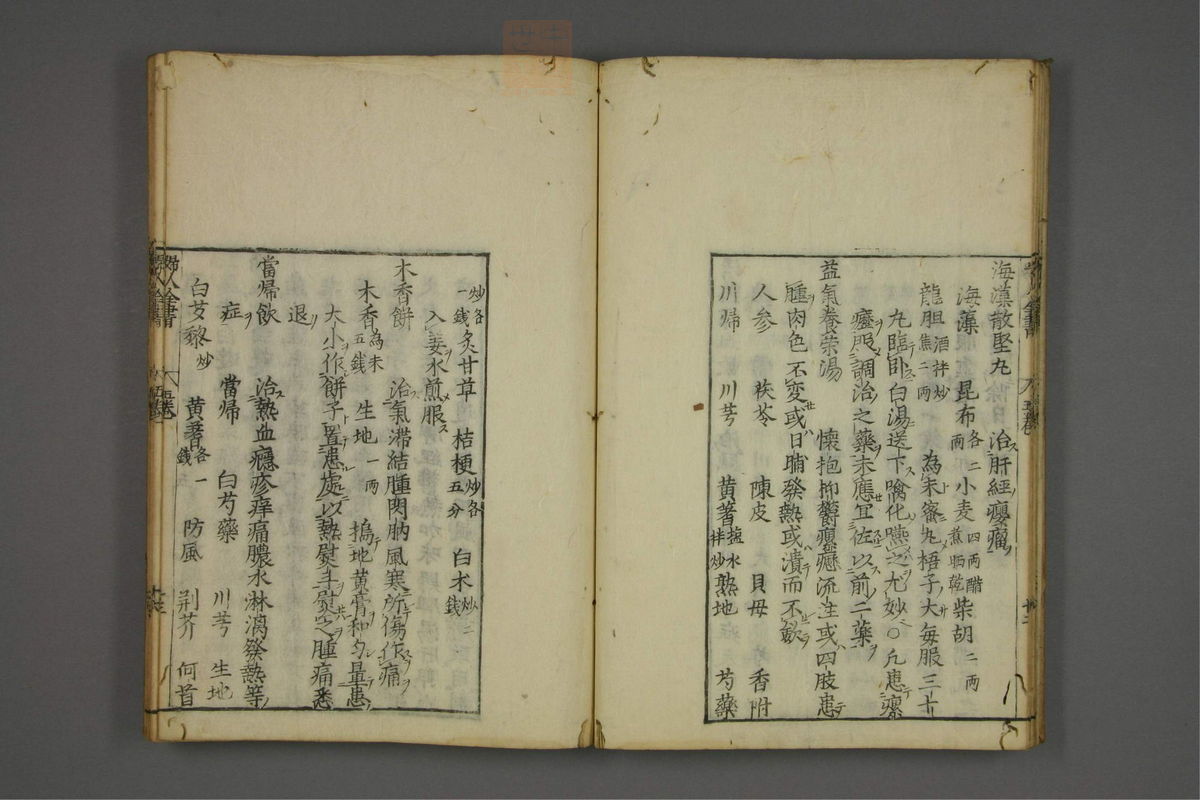 海藻散堅丸　治肝經癭瘤
海藻　昆布各二兩　小麦四兩醋煮晒乾　柴胡二两
龍胆酒拌炒焦二両　為末蜜丸梧子大每服三十
九臨卧白湯送下噙化嚥之尤妙○凡患瘰
癧服調治之藥未應宜佐以前二藥
益氣養荣湯　懷抱抑鬱瘰癧流注或四肢患
腫肉色不変或日晡發熱或潰而不斂
人参　茯苓　陳皮　貝母　香附
川帰　川芎　黄蓍塩水拌炒　熟地　芍藥
炒各一錢　炙甘草　桔梗炒各五分　白术炒二錢
入姜水煎服
木香餅　治氣滞結腫閃肭風寒所傷作痛
木香為末五錢　生地一兩　搗地黄膏和匀量患
大小作餅子置患處以熱熨斗熨之腫痛悉
退
當帰飲　治熱血癮疹痒痛膿水淋漓發熱等
症　當帰　白芍藥　川芎　生地
白芟藜炒　黄蓍各一錢　防風　荊芥　何首
婦人全書
五卷